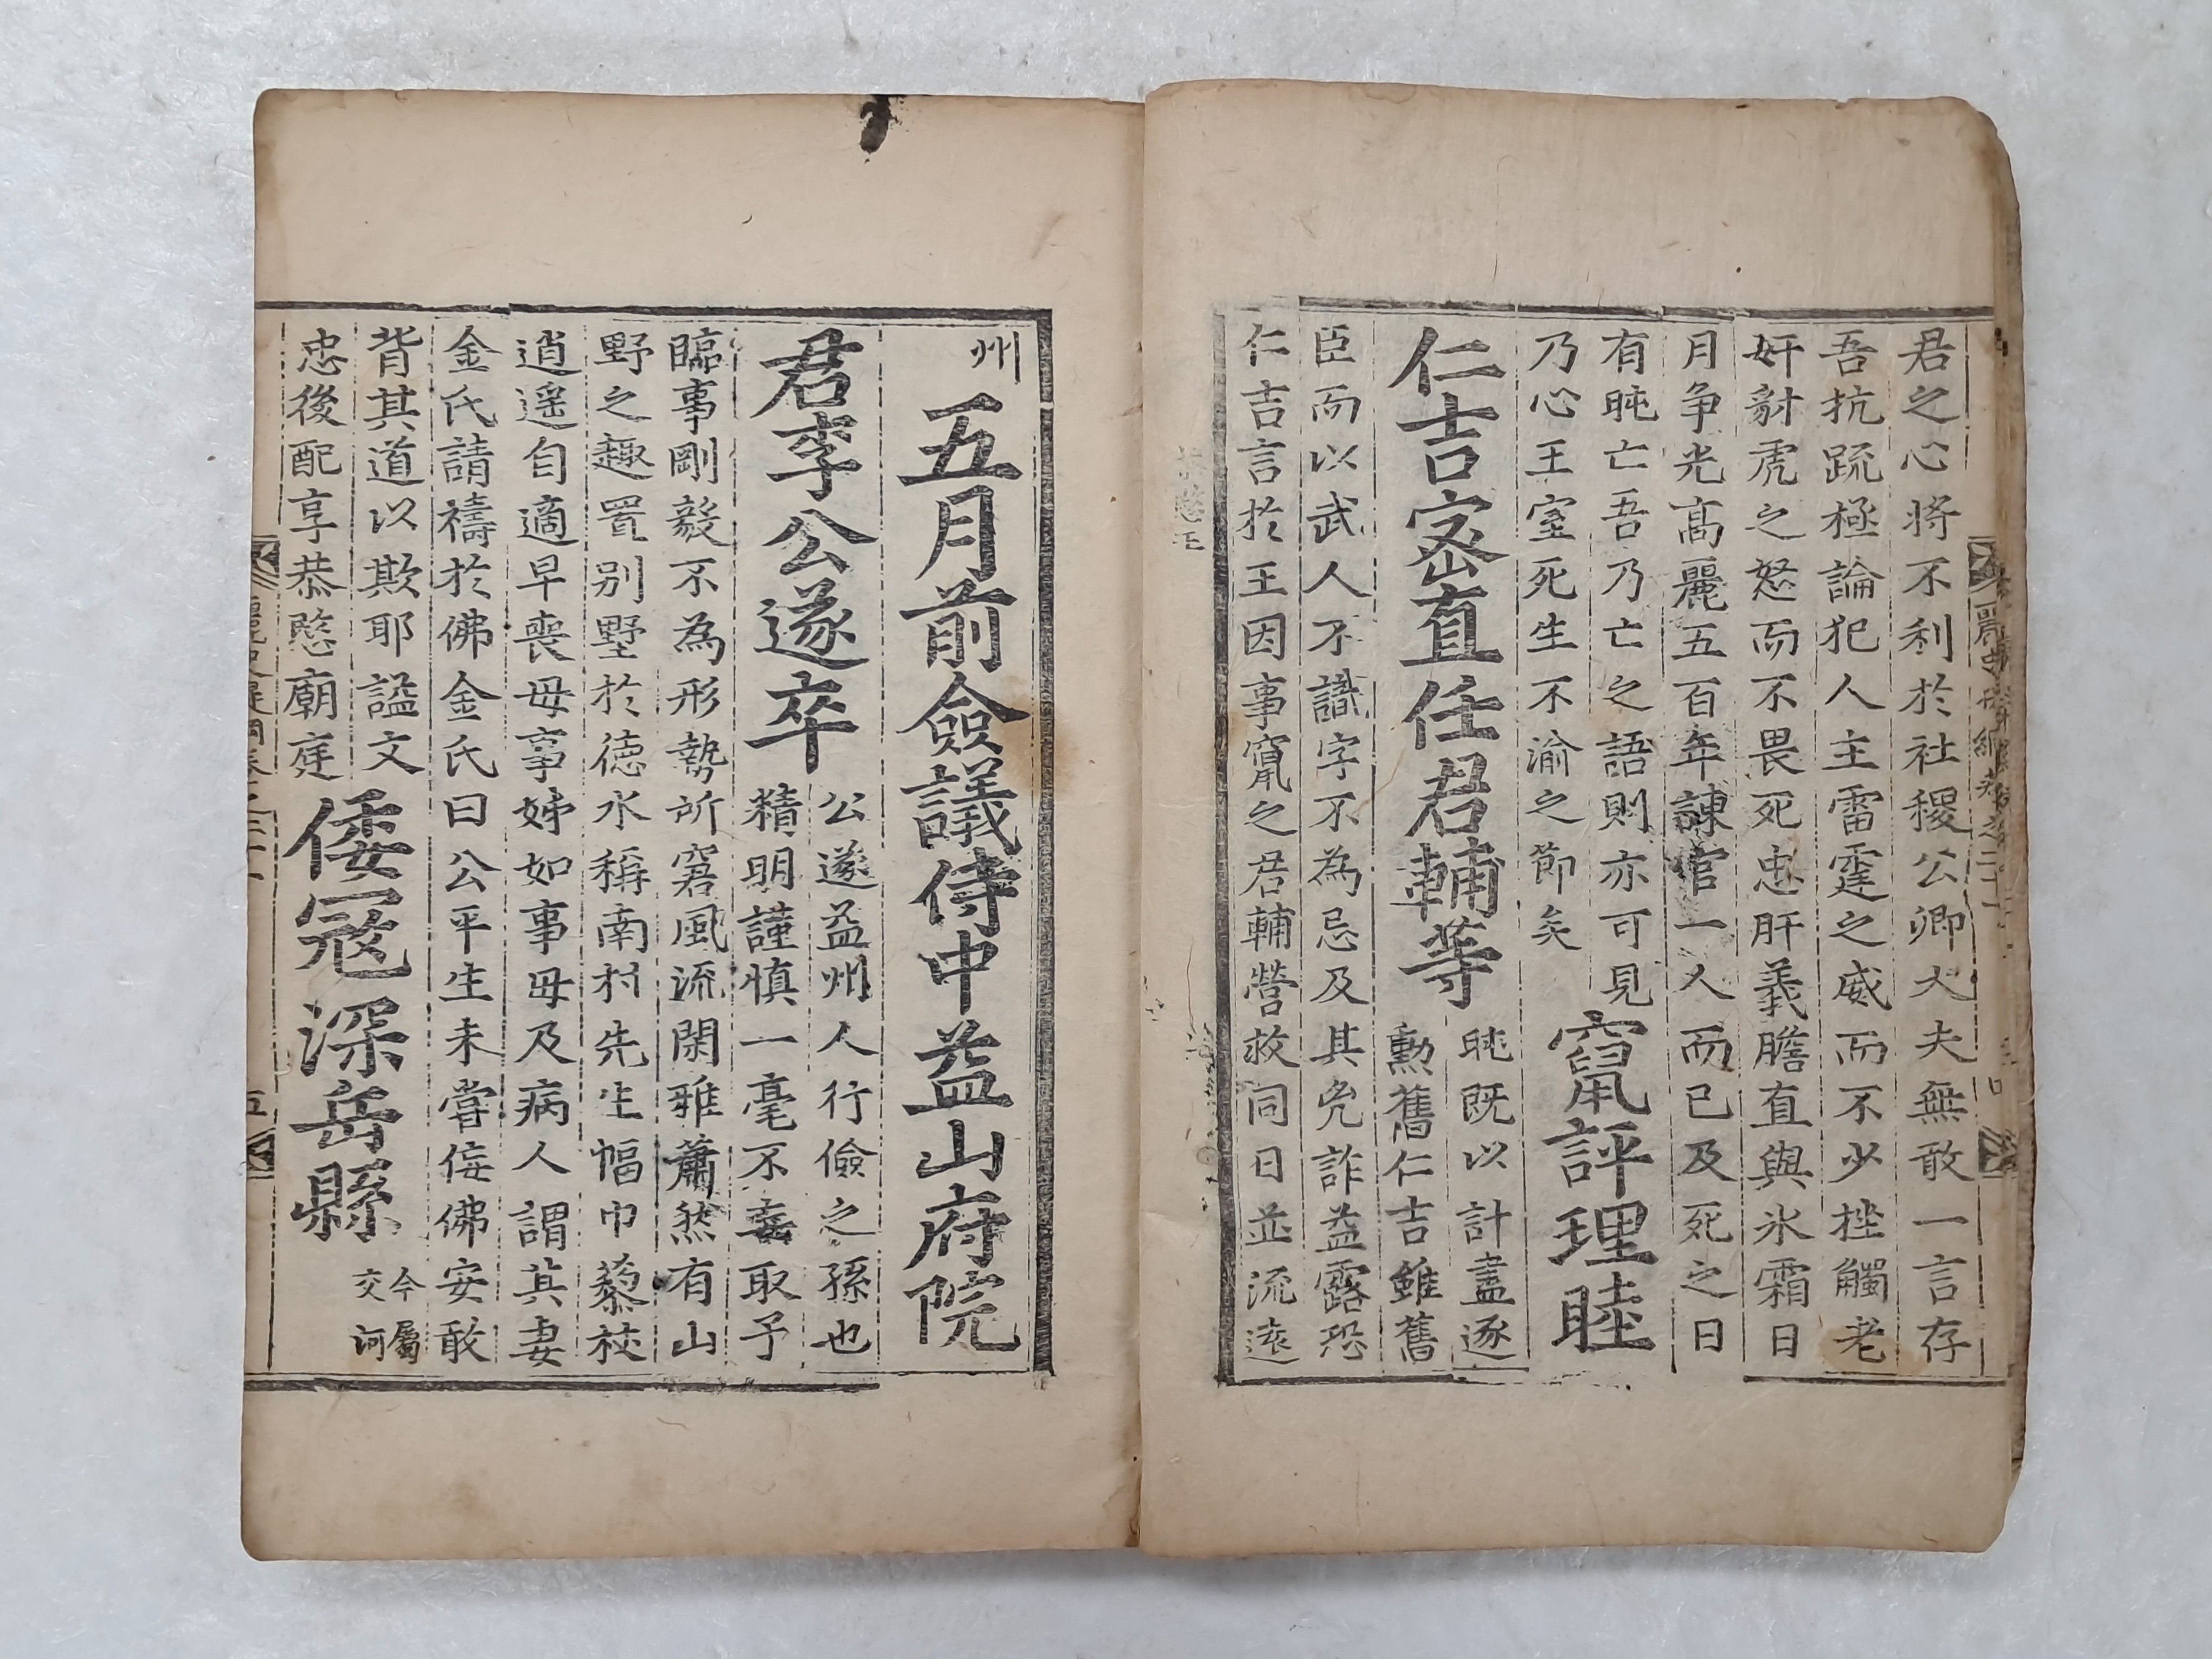 君之心將不利於社稷公卿大夫無敢一言存
吾抗疏極論犯人主雷霆之威而不少挫觸老
奸豺虎之怒而不畏死忠肝義膽直與氷霜日
月争光高麗五百年諫官一人而已及死之日
有旽亡吾乃亡之語則亦可見
乃心王室死生不渝之節矣
竄評理睦
仁吉密直任君輔等
旽旣以計盡逐
勳舊仁吉雖舊
臣而以武人不識字不為忌及其兇詐益露恐
仁吉言於王因事竄之君輔營救同日並流遠
州
五月前僉議侍中益山府院
君李公遂卒
公遂益州人行儉之孫也
精明謹愼一毫不妄取予
臨事剛毅不為形勢所窘風流閑雅蕭然有山
野之趣置别墅於德水稱南村先生幅巾藜杖
逍遥自適早喪母事姊如事母及病人謂其妻
金氏請禱於佛金氏曰公平生未嘗侫佛安敢
背其道以欺耶謚文
忠後配享恭愍廟庭
倭寇深岳縣
今屬
交河